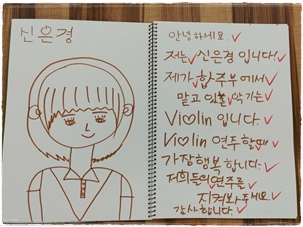 신은경
안녕하세요.
저는 신은경 입니다!
제가 합주부에서
맡고 있는 악기는
Vi♡lin 입니다
Vi♡lin 연주할때
가장행복 합니다.
저희들의 연주를
지켜봐주세요
감사합니다